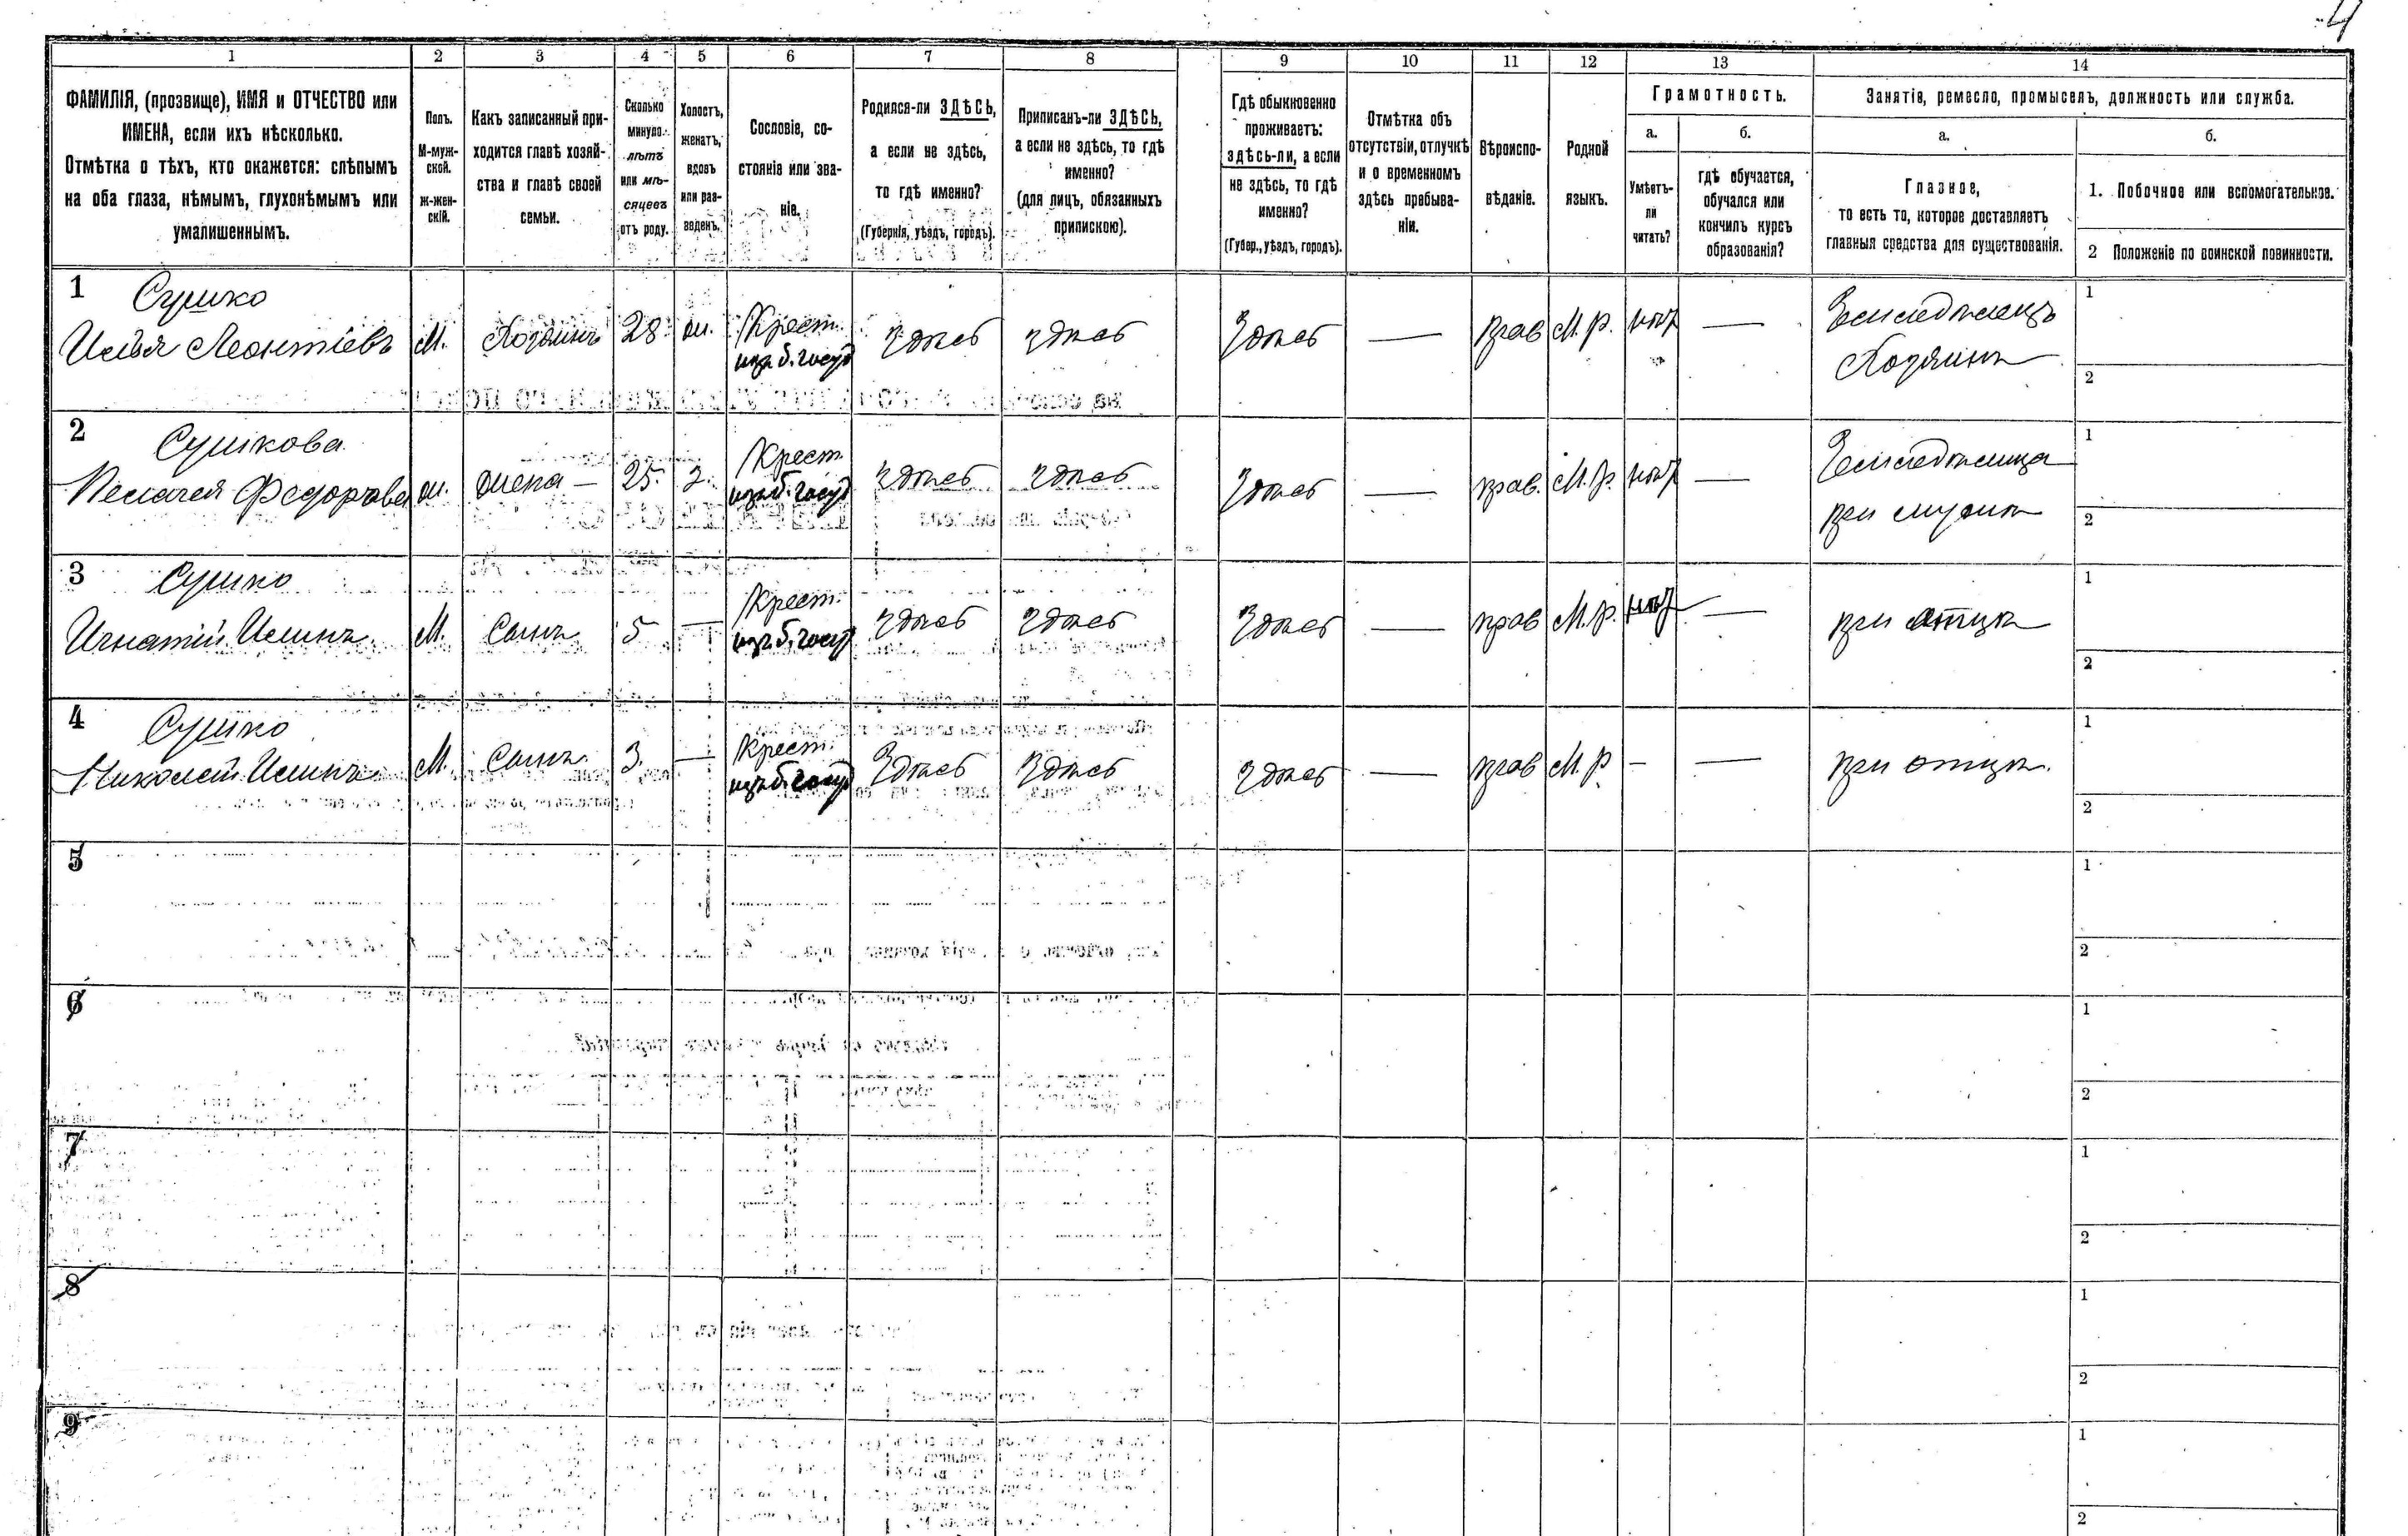 4
1 2 3 4 5 6 7 8 9 10 11 12 13 14
ФАМИЛІЯ, (прозвище), ИМЯ и ОТЧЕСТВО или
ИМЕНА, если ихъ нѣсколько.
Отмѣтка о тѣхъ, кто окажется: слѣпымъ
на оба глаза, нѣмымъ, глухонѣмымъ или
умалишеннымъ.
Полъ.
М-муж-
ской.
Ж-жен-
скій.
Какъ записанный при-
ходится главѣ хозяй-
ства и главѣ своей
семьи.
Сколько
минуло
лѣтъ
или мѣ-
сяцевъ
отъ роду.
Холостъ,
женатъ,
вдовъ
или раз-
веденъ.
Сословіе, со-
стояніе или зва-
ніе.
Родился-ли ЗДѢСЬ,
а если не здѣсь,
то гдѣ именно?
(Губернія, уѣздъ, городъ).
Приписанъ-ли ЗДѢСЬ,
а если не здѣсь, то гдѣ
именно?
(для лицъ, обязанныхъ
припискою).
Гдѣ обыкновенно
проживаетъ:
здѣсь-ли, а если
не здѣсь, то гдѣ
именно?
(Губер., уѣздъ, городъ).
Отмѣтка объ
отсутствіи, отлучкѣ
и о временномъ
здѣсь пребыва-
ніи.
Вѣроиспо-
вѣданіе.
Родной
языкъ.
Грамотность.
а.
Умѣетъ-
ли
читать?
б.
гдѣ обучается,
обучался или
кончилъ курсъ
образованія?
Занятіе, ремесло, промыселъ, должность или служба.
а.
Главное,
то есть то, которое доставляетъ
главныя средства для существованія.
б.
1. Побочное или вспомогательное.
2 Положеніе по воинской повинности.
1 Сушко
Илья Леонтіевъ М. Хозяинъ 28 ж. Крест. здѣсь здѣсь Здѣсь — прав М. р. нѣт — Земледѣлецъ 1
изъ б. госуд Хозяинъ 2
2 Сушкова
Пелагея Федорова ж. жена — 25. з. Крест. здѣсь здѣсь Здѣсь — прав. М. р. нѣт — Земледѣлица 1
изъ б. госуд при мужѣ 2
3 Сушко
Игнатій Ильинъ М. Сынъ 5 — Крест. здѣсь здѣсь Здѣсь — прав М. р. нѣт — при отцѣ 1
изъ б. госуд 2
4 Сушко
Николай Ильинъ М. Сынъ 3. — Крест. Здѣсь Здѣсь Здѣсь — прав М. р — — при отцѣ. 1
изъ б. госуд 2
5 1
2
6 1
2
7 1
2
8 1
2
9 1
2